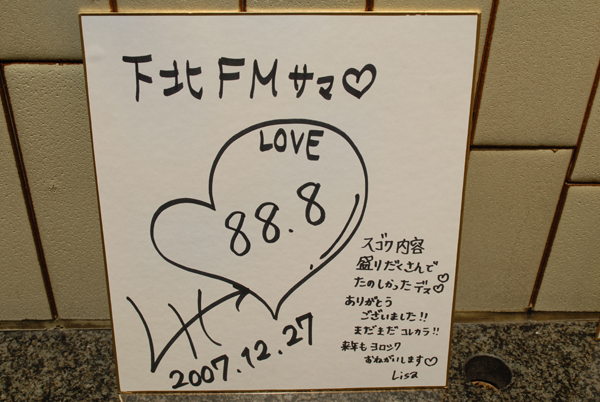 下北FMサマ♡
LOVE
88.8
スゴク内容
盛りだくさんで
たのしかったデス♡
ありがとう
ございました!!
まだまだコレカラ!!
来年もヨロシク
おねがいします♡
Lisa
2007.12.27